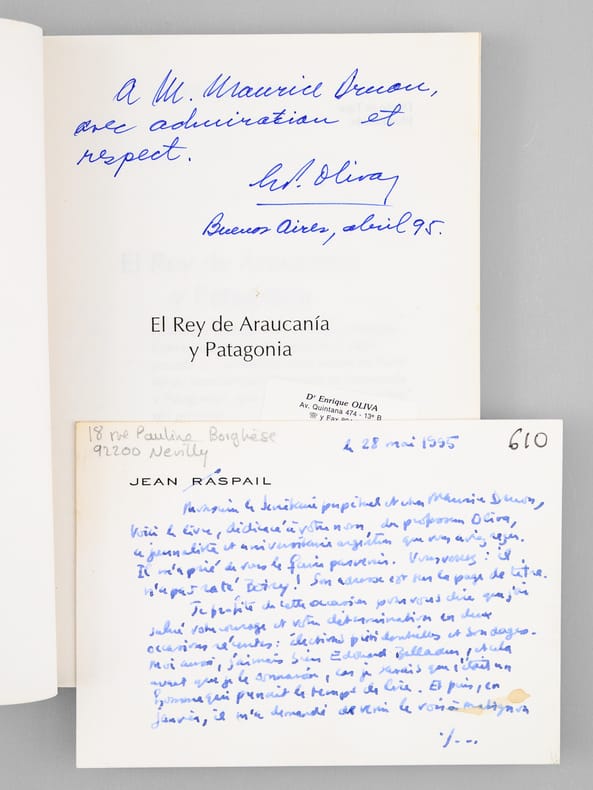 A M. Maurice Druon,
avec admiration et
respect.
Oliva
Buenos Aires, abril 95.
El Rey de Araucanía
y Patagonia
Dr Enrique OLIVA
Av. Quintana 474 - 13º B
y Fax
18 rue Pauline Borghèse
92200 Neuilly
le 28 mai 1995
610
JEAN RASPAIL
Monsieur le Secrétaire perpétuel et cher Maurice Druon,
Voici le livre, dédicacé à votre nom, du professeur Oliva,
ce journaliste et universitaire argentin que vous aviez
Il m'a prié de vous le faire parvenir. Vous verrez : il
n'a pas raté Borey ! Son adresse est sur la page de titre.
Je profite de cette occasion pour vous dire que j'ai
salué votre courage et votre détermination en deux
occasions récentes : élections présidentielles et sondages.
Moi aussi, j'aimais bien Edouard Balladur, et cela
avant que je le connaisse, car je savais que c'était un
homme qui prenait le temps de lire. Et puis, en
janvier, il m'a demandé de venir le voir à Matignon
./...